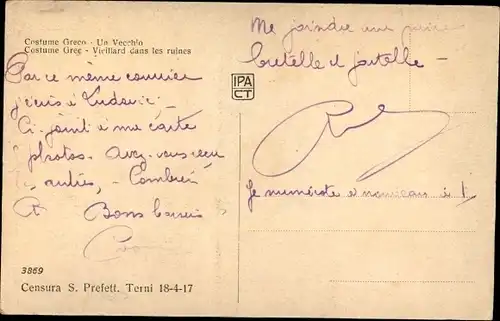 Costume Greco - Un Vecchio
Costume Grec - Vieillard dans les ruines
Par ce même courrier
j'écris à Ludovic -
Ci-joint à ma carte
photos. Avez-vous reçu
autres, - Combien
Bons baisers
3869
Censura S. Prefett. Terni 18-4-17
IPA
CT
Me joindre une paire
bretelle et jartelle -
Je numérote à nouveau à 1